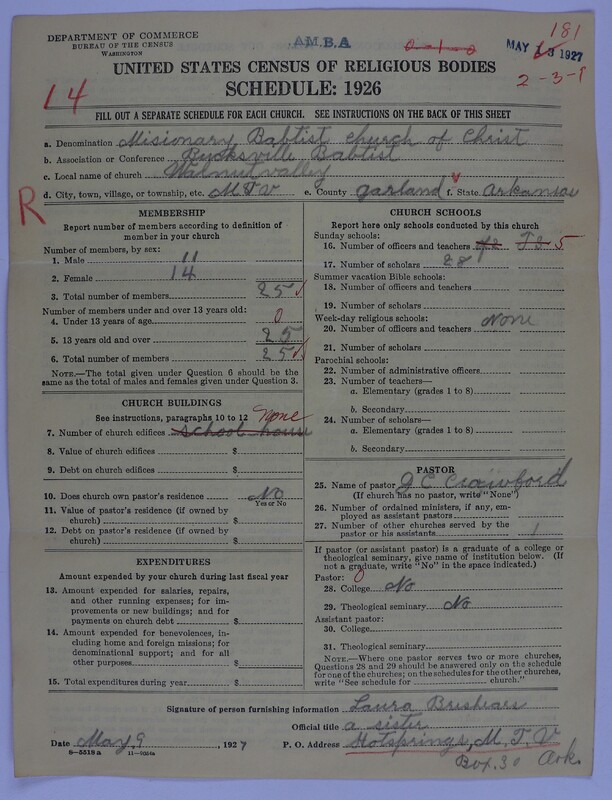 DEPARTMENT OF COMMERCE
BUREAU OF THE CENSUS
WASHINGTON
A.M.B.A
0-1-0
181
MAY 13 1927
2-3-1
UNITED STATES CENSUS OF RELIGIOUS BODIES
SCHEDULE: 1926
14
FILL OUT A SEPARATE SCHEDULE FOR EACH CHURCH. SEE INSTRUCTIONS ON THE BACK OF THIS SHEET
a. Denomination Misionary Baptist Church of Christ
b. Association or Conference Bucksville Baptist
c. Local name of church Walnut valley
d. City, town, village, or township, etc. M T V e. County garland f. State Arkansas
R
MEMBERSHIP
Report number of members according to definition of member in your church
Number of members, by sex:
1. Male 11
2. Female 14
3. Total number of members 25
Number of members under and over 13 years old:
4. Under 13 years of age 0
5. 13 years old and over 25
6. Total number of members 25
NOTE.—The total given under Question 6 should be the same as the total of males and females given under Question 3.
CHURCH BUILDINGS
See instructions, paragraphs 10 to 12 None
7. Number of church edifices school house
8. Value of church edifices $
9. Debt on church edifices $
10. Does church own pastor's residence No
Yes or No
11. Value of pastor's residence (if owned by church) $
12. Debt on pastor's residence (if owned by church) $
EXPENDITURES
Amount expended by your church during last fiscal year
13. Amount expended for salaries, repairs, and other running expenses; for improvements or new buildings; and for payments on church debt $
14. Amount expended for benevolences, including home and foreign missions; for denominational support; and for all other purposes $
15. Total expenditures during year $
CHURCH SCHOOLS
Report here only schools conducted by this church
Sunday schools:
16. Number of officers and teachers 5
17. Number of scholars 28
Summer vacation Bible schools:
18. Number of officers and teachers
19. Number of scholars
Week-day religious schools:
20. Number of officers and teachers None
21. Number of scholars
Parochial schools:
22. Number of administrative officers
23. Number of teachers—
a. Elementary (grades 1 to 8)
b. Secondary
24. Number of scholars—
a. Elementary (grades 1 to 8)
b. Secondary
PASTOR
25. Name of pastor J C Crawford
(If church has no pastor, write "None")
26. Number of ordained ministers, if any, employed as assistant pastors
27. Number of other churches served by the pastor or his assistants 1
If pastor (or assistant pastor) is a graduate of a college or theological seminary, give name of institution below. (If not a graduate, write "No" in the space indicated.)
Pastor: 0
28. College No
29. Theological seminary No
Assistant pastor:
30. College
31. Theological seminary
NOTE.—Where one pastor serves two or more churches, Questions 28 and 29 should be answered only on the schedule for one of the churches; on the schedules for the other churches, write "See schedule for church."
Signature of person furnishing information Laura Brishears
Official title a sister
Date May 9, 1927 P. O. Address Hotsprings, M. T. V
8-5519a 11-9054a
Box. 30 Ark.